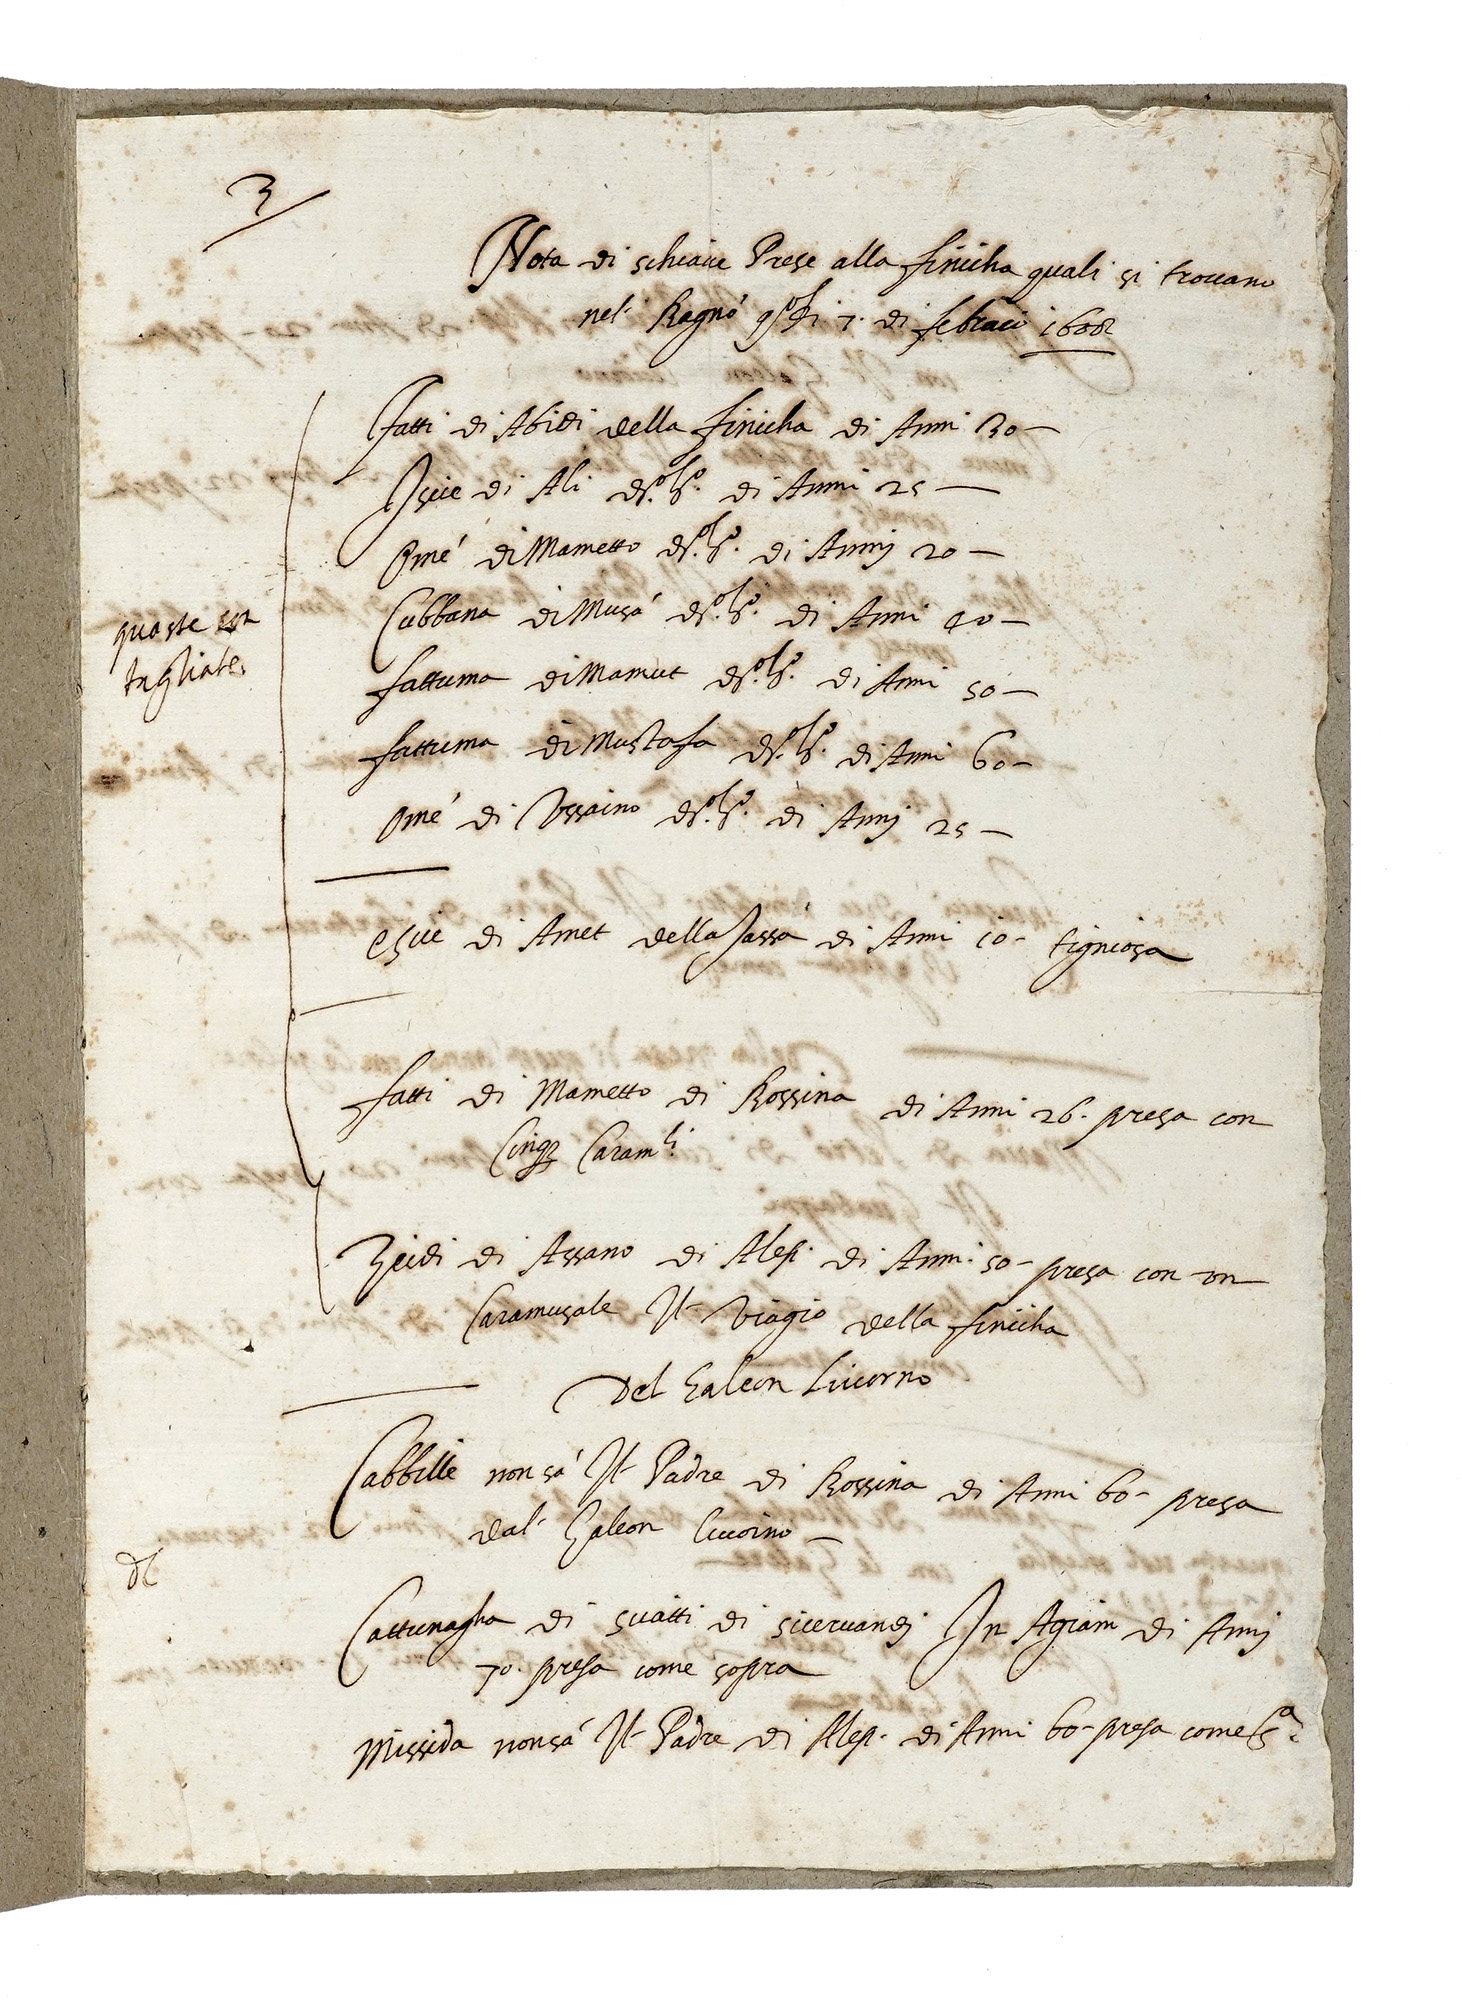 3
Nota di schiaue Prese alla finicha quali si trouano
nel Bagno q.to di 7. di febraio 1608
fatti di Abidi della finicha di Anni 30 —
Isuie di Ali d.o l.o di Anni 25 —
Omé di Mametto d.o l.o di Annj 20 —
Cubbana di Musá d.o l.o di Anni 40 —
queste son
tagliate
fattuma di Mamut d.o l.o di Anni 50 —
fattuma di Mustafa d.o l.o di Anni 60 —
Omé di Ussaino d.o l.o di Annj 25 —
Esue di Amet della Jassa di Anni 10 - tigniosa
fatti di Mametto di Rossina di Anni 26. presa con
Cinq3 Caram.li
Zeidi di Assano di Alep. di Anni. 50 - presa con un
Caramusale Il Viagio della finicha
Del Galeon Liuorno
Cabbille non sá Il Padre di Rossina di Anni 60 - presa
dal Galeon Liuorno —
Cattunagha di suaitti di In Agiam di Annj
70. presa come sopra
Missida non sá Il Padre di Alep. di Anni 60 - presa come s.a